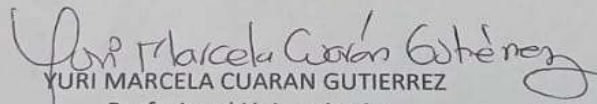 Yuri Marcela Cuarán Gutiérrez
YURI MARCELA CUARAN GUTIERREZ